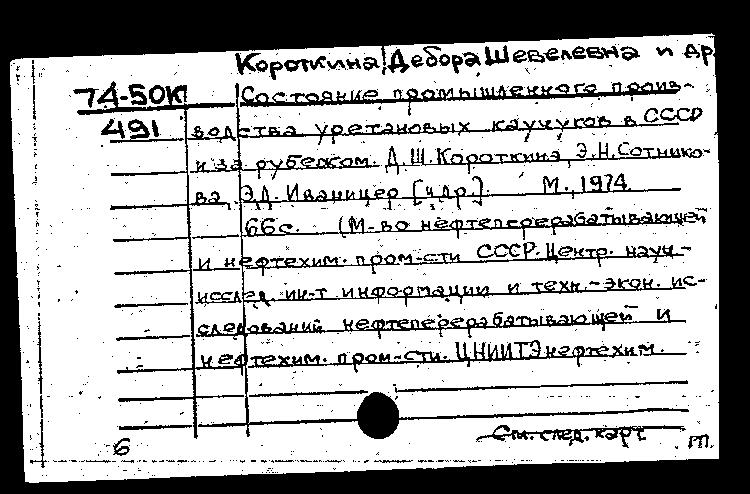 Короткина, Дебора Шевелевна и др
74-50К Состояние промышленного произ-
491 водства уретановых каучуков в СССР
и за рубежом. Д.Ш.Короткина, Э.Н.Сотнико-
ва, Э.Д. Иваницер [и др.]. М., 1974.
66с. (М-во нефтеперерабатывающей
и нефтехим. пром-сти СССР. Центр. науч.-
исслед. ин-т информации и техн.-экон. ис-
следований нефтеперерабатывающей и
нефтехим. пром-сти. ЦНИИТЭнефтехим.
См. след. карт
6 т.